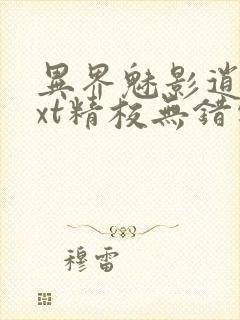 異界魅影逍
xt精校無錯
穆雷